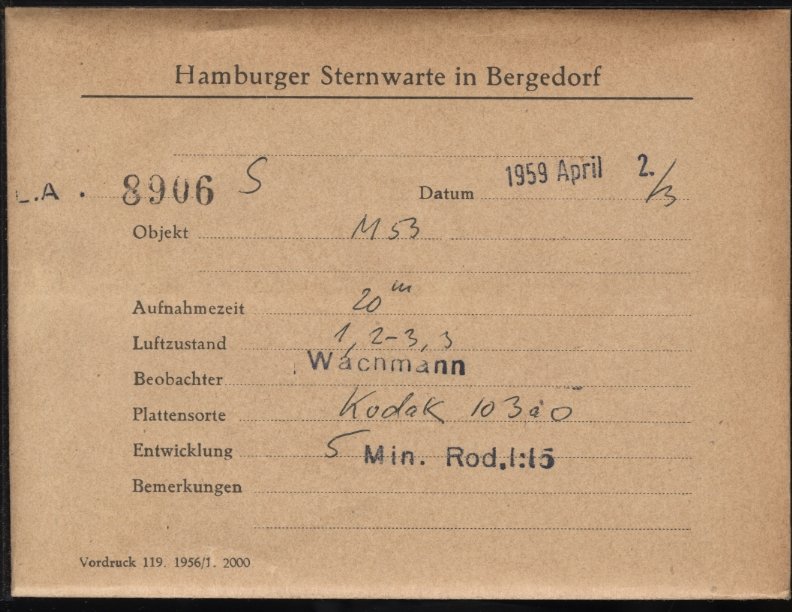 Hamburger Sternwarte in Bergedorf
L.A. 8906 S Datum 1959 April 2./3
Objekt M 53
Aufnahmezeit 20 m
Luftzustand 1, 2-3, 3
Beobachter Wachmann
Plattensorte Kodak 103aO
Entwicklung 5 Min. Rod. 1:15
Bemerkungen
Vordruck 119. 1956/1. 2000